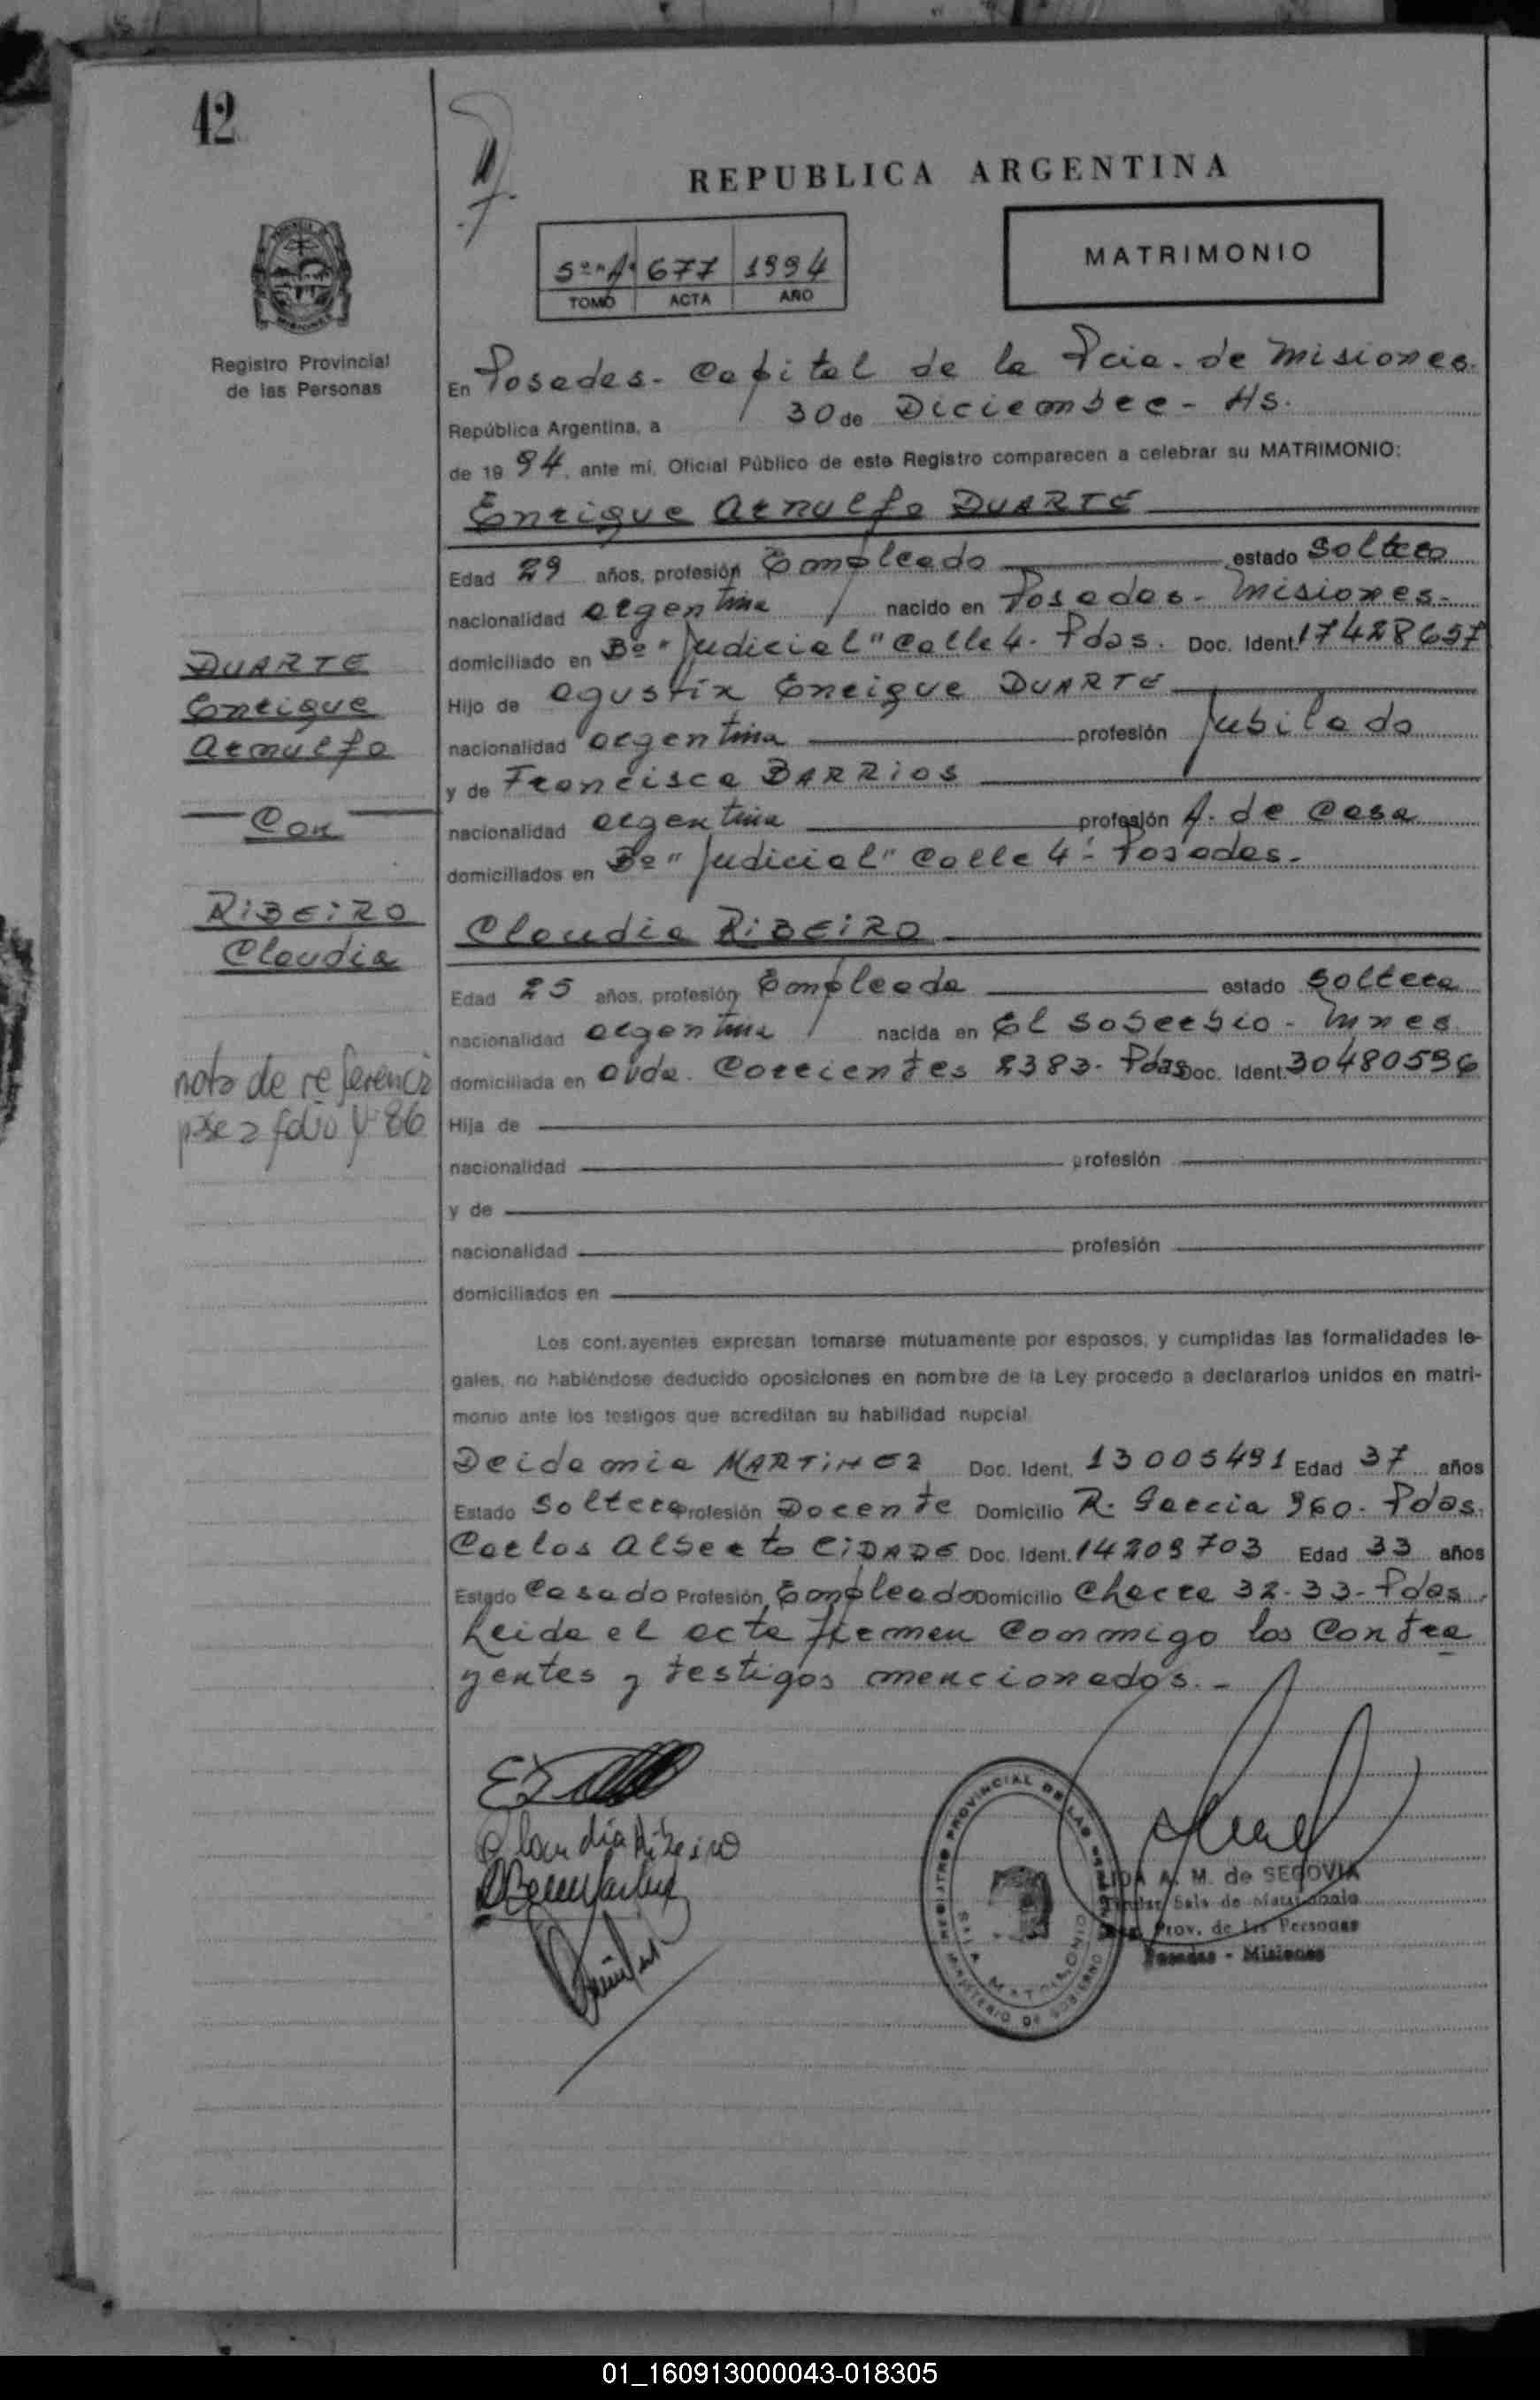 42
REPUBLICA ARGENTINA
5º "A" 677 1994
TOMO ACTA AÑO
MATRIMONIO
Registro Provincial
de las Personas
En Posadas - Capital de la Pcia. de Misiones.
República Argentina, a 30 de Diciembre - Hs.
de 19 94, ante mí, Oficial Público de este Registro comparecen a celebrar su MATRIMONIO:
Enrique Arnulfo DUARTE
Edad 29 años, profesión Empleado estado Soltero
nacionalidad argentina nacido en Posadas - Misiones -
domiciliado en Bº "Judicial" Calle 4 - Pdas. Doc. Ident. 17428657
Hijo de Agustín Enrique DUARTE
nacionalidad argentina profesión Jubilado
y de Francisca BARRIOS
nacionalidad argentina profesión A. de Casa
domiciliados en Bº "Judicial" Calle 4 - Posadas -
DUARTE
Enrique
Arnulfo
Con
RIBEIRO
Claudia
nota de referencia
pse a folio Nº 86
Claudia RIBEIRO
Edad 25 años, profesión Empleada estado Soltera
nacionalidad argentina nacida en El Soberbio - Mnes
domiciliada en Avda. Corrientes 2383 - Pdas Doc. Ident. 30480596
Hija de
nacionalidad profesión
y de
nacionalidad profesión
domiciliados en
Los contrayentes expresan tomarse mutuamente por esposos, y cumplidas las formalidades le-
gales, no habiéndose deducido oposiciones en nombre de la Ley procedo a declararlos unidos en matri-
monio ante los testigos que acreditan su habilidad nupcial
Deidamia MARTINEZ Doc. Ident. 13005491 Edad 37 años
Estado Soltera Profesión Docente Domicilio R. Garcia 960 - Pdas.
Carlos Alberto CIDADE Doc. Ident. 14209703 Edad 33 años
Estado Casado Profesión Empleado Domicilio Chacra 32-33 - Pdas.
Leida el acta firman conmigo los Contra
yentes y testigos mencionados. -
Claudia Ribeiro
REGISTRO PROVINCIAL DE LAS PERSONAS
SALA MATRIMONIO
MINISTERIO DE GOBIERNO
LIDA A. M. de SEGOVIA
Titular Sala de Matrimonio
Reg. Prov. de las Personas
Posadas - Misiones
01_160913000043-018305